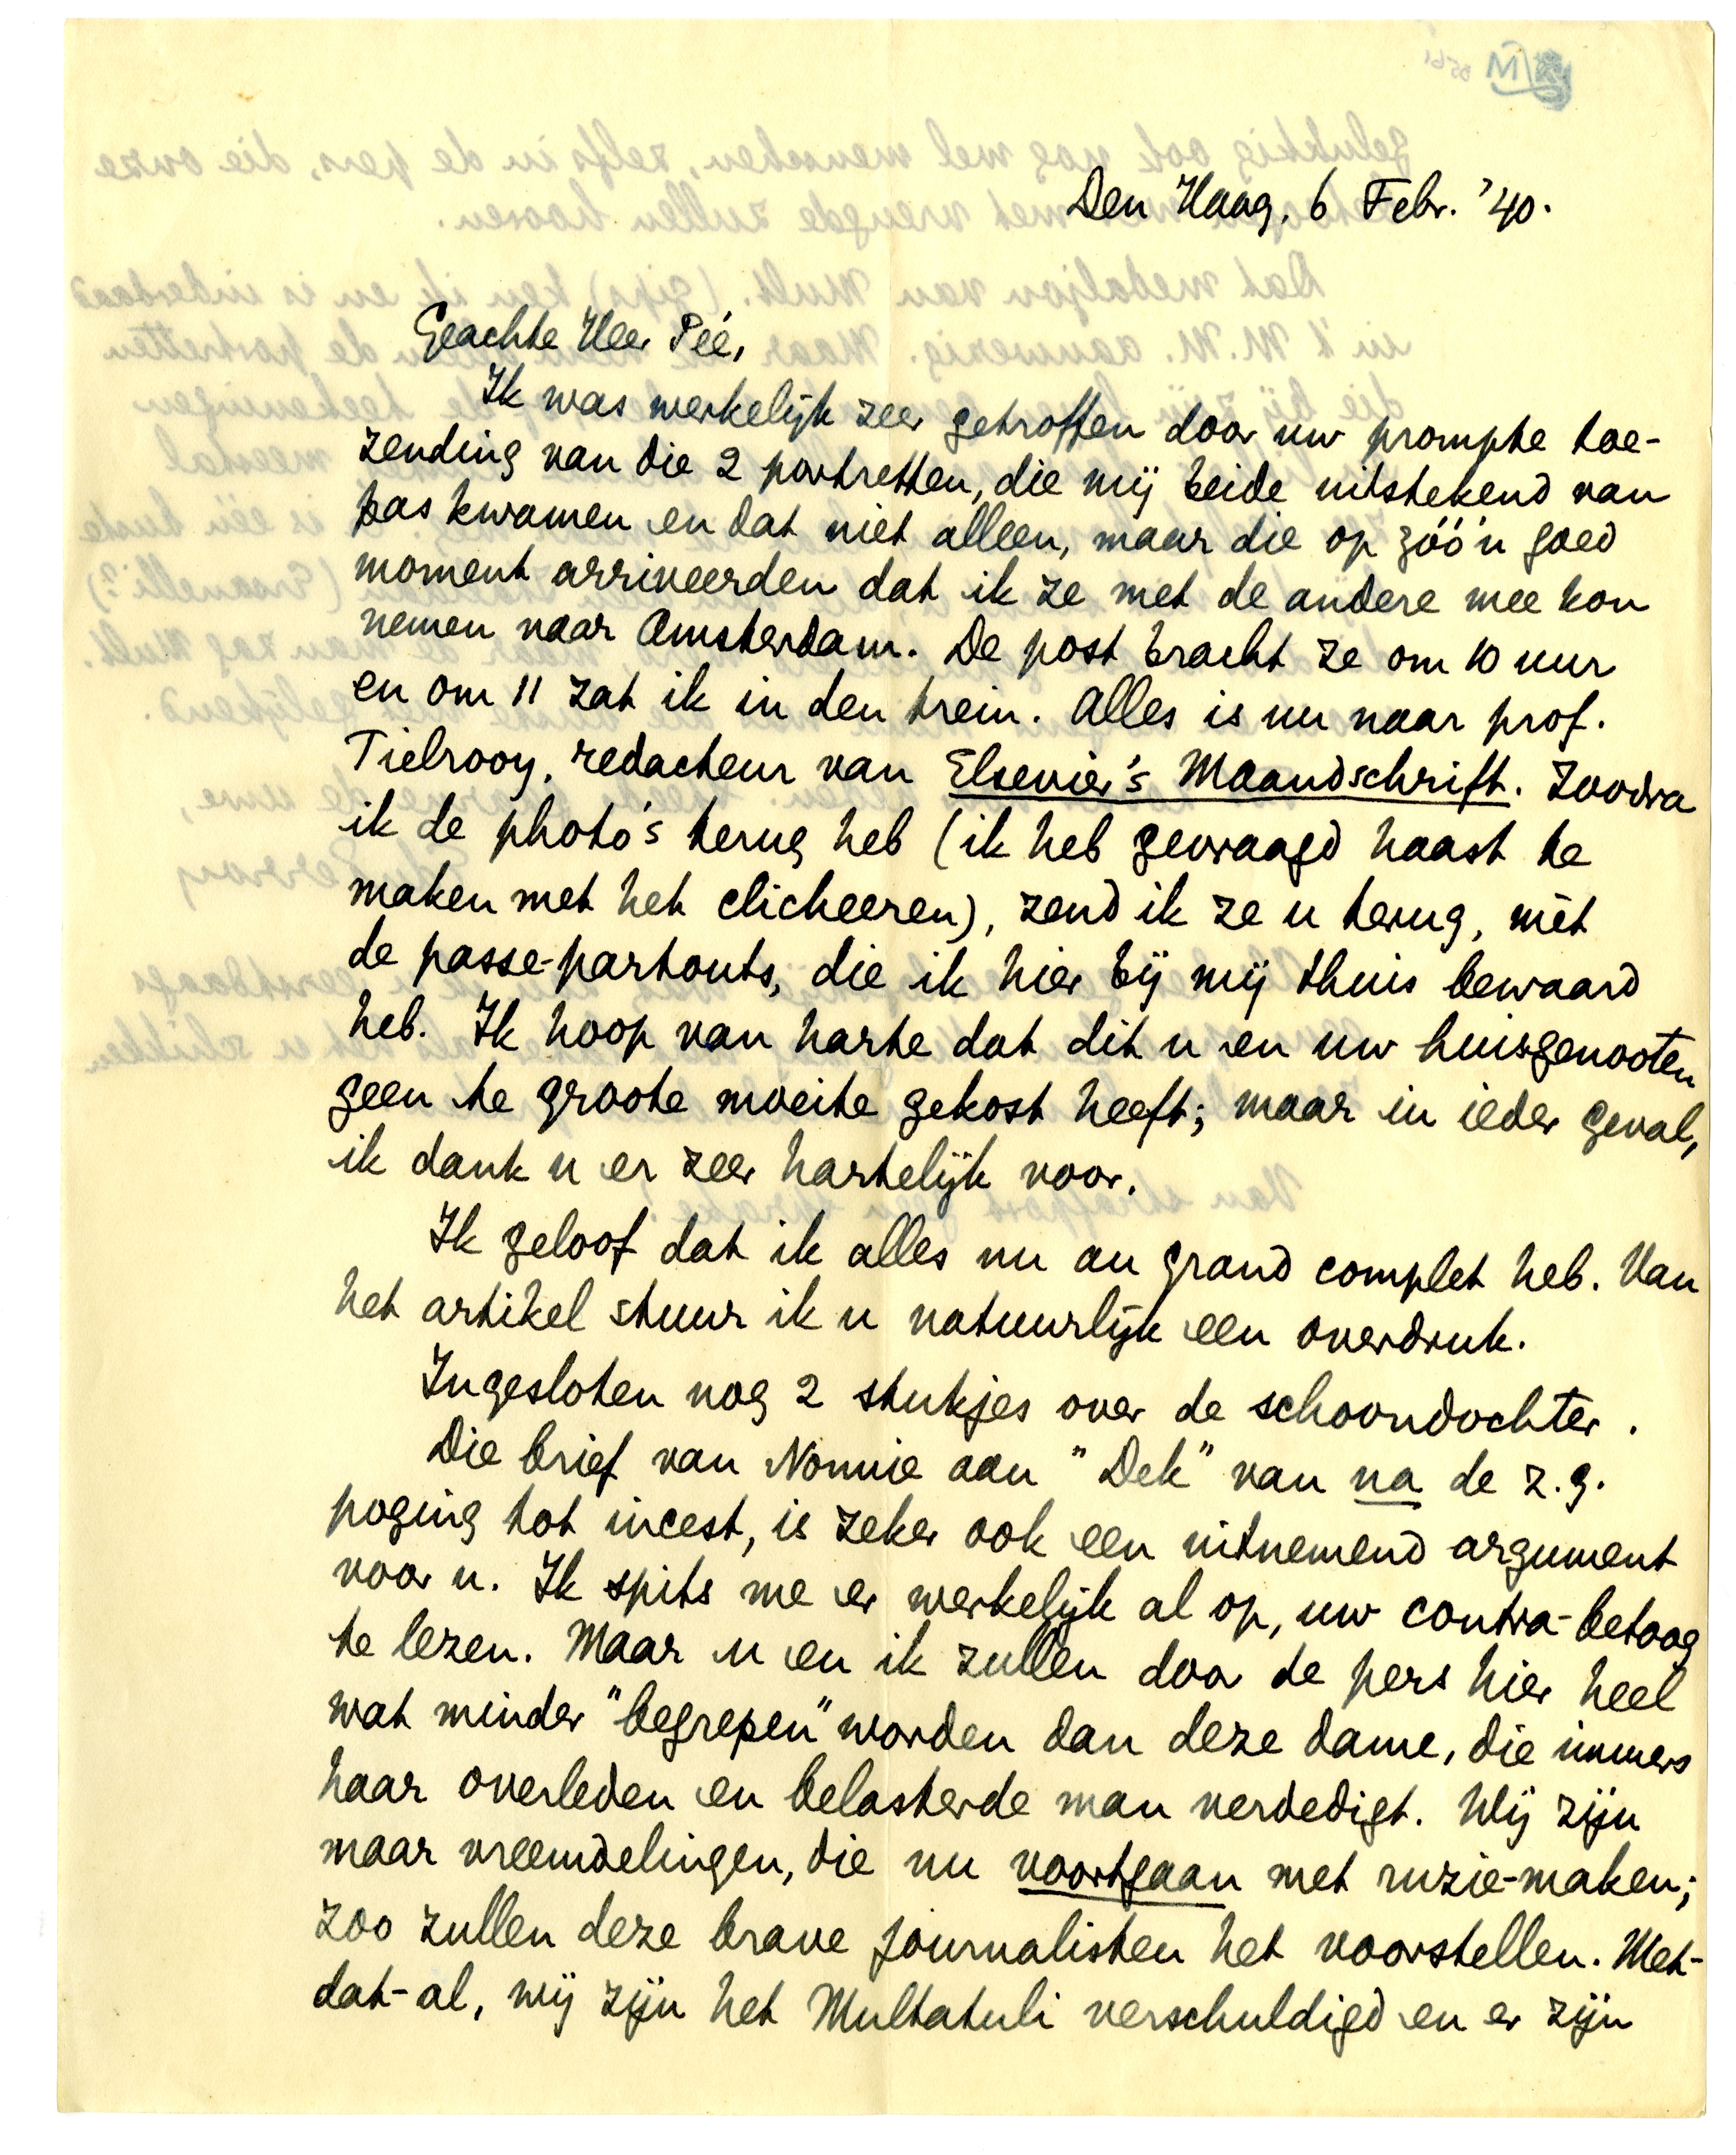 Den Haag, 6 Febr. '40.
Geachte Heer Pée,
Ik was werkelijk zeer getroffen door uw prompte toe-
zending van die 2 portretten, die mij beide uitstekend van
pas kwamen en dat niet alleen, maar die op zóó'n goed
moment arriveerden dat ik ze met de andere mee kon
nemen naar Amsterdam. De post bracht ze om 10 uur
en om 11 zat ik in den trein. Alles is nu naar prof.
Tielrooy, redacteur van Elsevier's Maandschrift. Zoodra
ik de photo's terug heb (ik heb gevraagd haast te
maken met het clicheeren), zend ik ze u terug, mèt
de passe-partouts, die ik hier bij mij thuis bewaard
heb. Ik hoop van harte dat dit u en uw huisgenooten
geen te groote moeite gekost heeft; maar in ieder geval,
ik dank u er zeer hartelijk voor.
Ik geloof dat ik alles nu au grand complet heb. Van
het artikel stuur ik u natuurlijk een overdruk.
Ingesloten nog 2 stukjes over de schoondochter.
Die brief van Nonnie aan "Dek" van na de z.g.
poging tot incest, is zeker ook een uitnemend argument
voor u. Ik spits me er werkelijk al op, uw contra-betoog
te lezen. Maar u en ik zullen door de pers hier heel
wat minder "begrepen" worden dan deze dame, die immers
haar overleden en belasterde man verdedigt. Wij zijn
maar vreemdelingen, die nu voortgaan met ruzie-maken;
zoo zullen deze brave journalisten het voorstellen. Met-
dat-al, wij zijn het Multatuli verschuldigd en er zijn